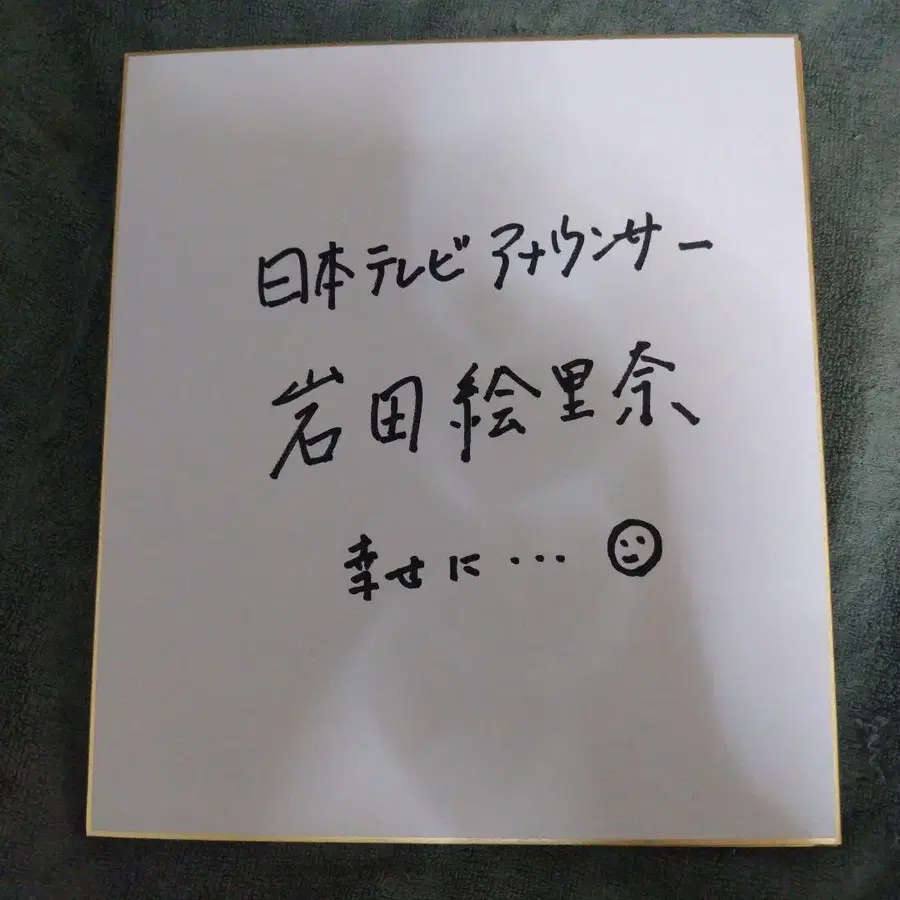 日本テレビアナウンサー
岩田絵里奈
幸せに・・・